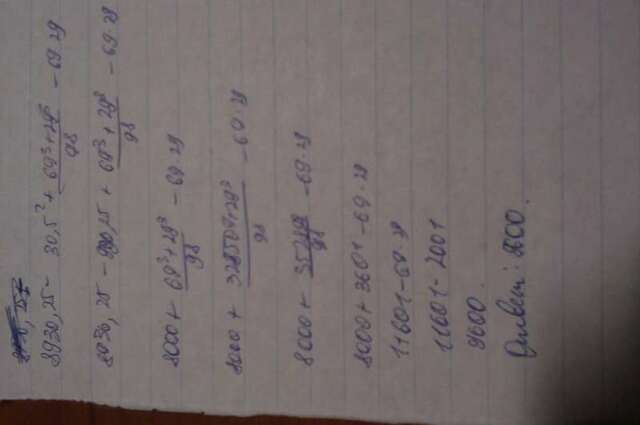 8930,25 - 30,5² + (69³+29³)/98 - 69·29
8930,25 - 930,25 + (69³+29³)/98 - 69·29
8000 + (69³+29³)/98 - 69·29
8000 + (328509+29³)/98 - 69·29
8000 + 352898/98 - 69·29
8000 + 3601 - 69·29
11601 - 69·29
11601 - 2001
9600.
Ответ: 9600.